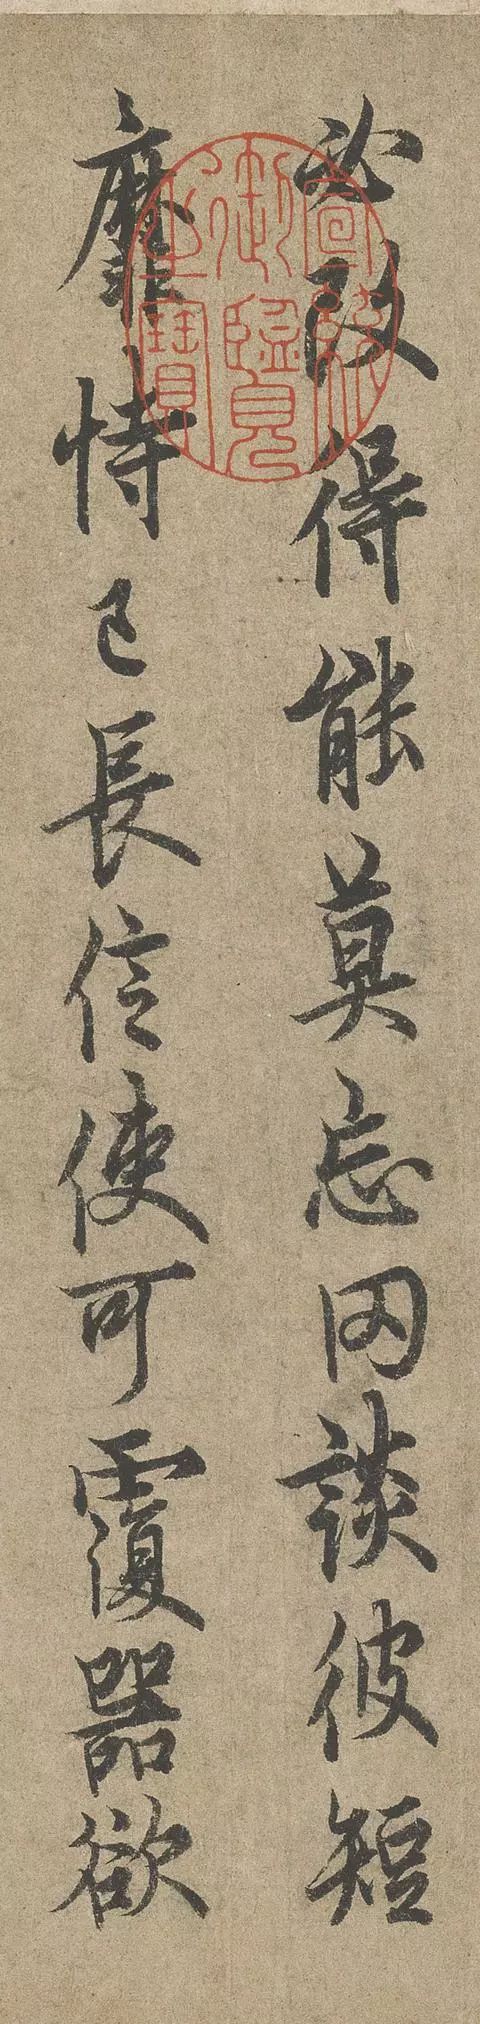 必改得能莫忘罔談彼短
靡恃己長信使可覆器欲
宣統
御覽
之寶